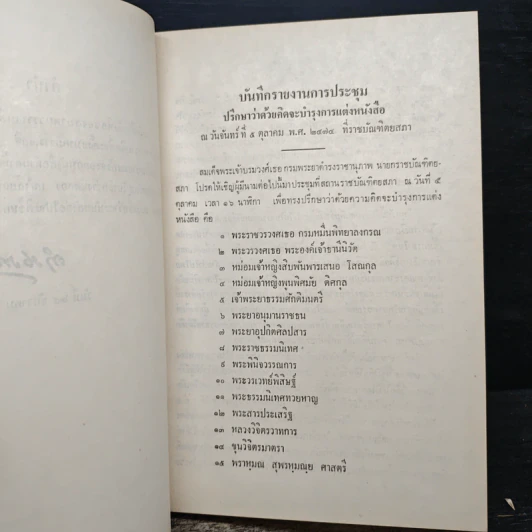 บันทึกรายงานการประชุม
ปรึกษาว่าด้วยคิดจะบำรุงการแต่งหนังสือ
ณ วันจันทร์ที่ ๕ ตุลาคม พ.ศ. ๒๔๗๔ ที่ราชบัณฑิตยสภา
สมเด็จพระเจ้าบรมวงศ์เธอ กรมพระยาดำรงราชานุภาพ นายกราชบัณฑิตย-
สภา โปรดให้เชิญผู้มีนามต่อไปนี้มาประชุมที่สถานราชบัณฑิตยสภา ณ วันที่ ๕
ตุลาคม เวลา ๑๖ นาฑิกา เพื่อทรงปรึกษาว่าด้วยความคิดจะบำรุงการแต่ง
หนังสือ คือ
๑ พระราชวรวงศเธอ กรมหมื่นพิทยาลงกรณ
๒ พระวรวงศเธอ พระองค์เจ้าธานีนิวัต
๓ หม่อมเจ้าหญิงสิบพันพารเสนอ โสณกุล
๔ หม่อมเจ้าหญิงพูนพิศมัย ดิศกุล
๕ เจ้าพระยาธรรมศักดิมนตรี
๖ พระยาอนุมานราชธน
๗ พระยาอุปกิตศิลปสาร
๘ พระราชธรรมนิเทศ
๙ พระพินิจวรรณการ
๑๐ พระวรเวทย์พิสิษฐ์
๑๑ พระธรรมนิเทศทวยหาญ
๑๒ พระสารประเสริฐ
๑๓ หลวงวิจิตรวาทการ
๑๔ ขุนวิจิตรมาตรา
๑๕ พราหฺมณ สุพรหฺมณฺย ศาสตรี